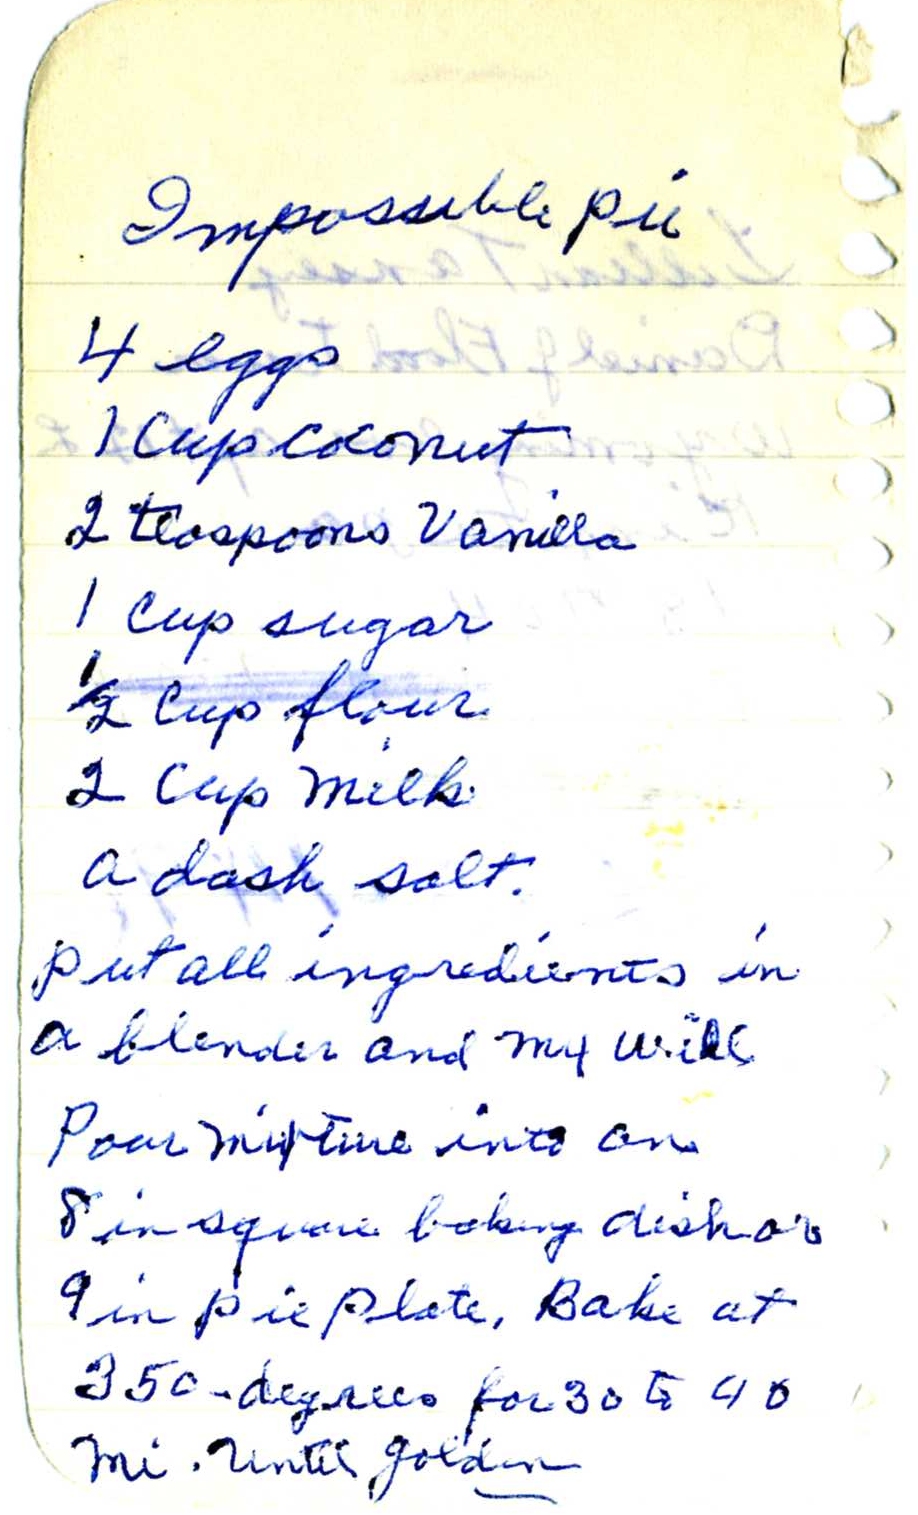 Impossible pie
4 eggs
1 Cup coconut
2 teaspoons Vanilla
1 cup sugar
1/2 cup flour
2 cup milk
a dash salt.
put all ingredients in
a blender and mix well
Pour mixture into an
8 in square baking dish or
9 in pie plate. Bake at
350-degrees for 30 to 40
mi. until golden